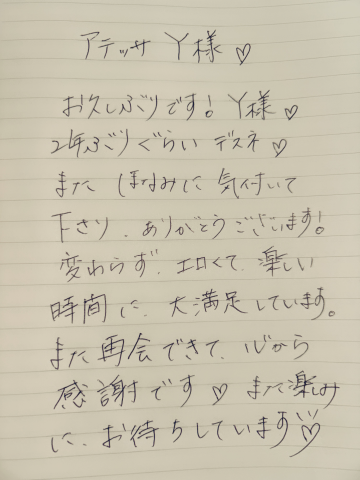 アテッサ Y様♡
お久しぶりです！Y様♡
2年ぶりぐらいデスネ♡
また ほなみに 気付いて
下さり、ありがとうございます！
変わらず、エロくて、楽しい
時間に、大満足しています。
また再会できて、心から
感謝です♡ また楽しみ
に、お待ちしています♡